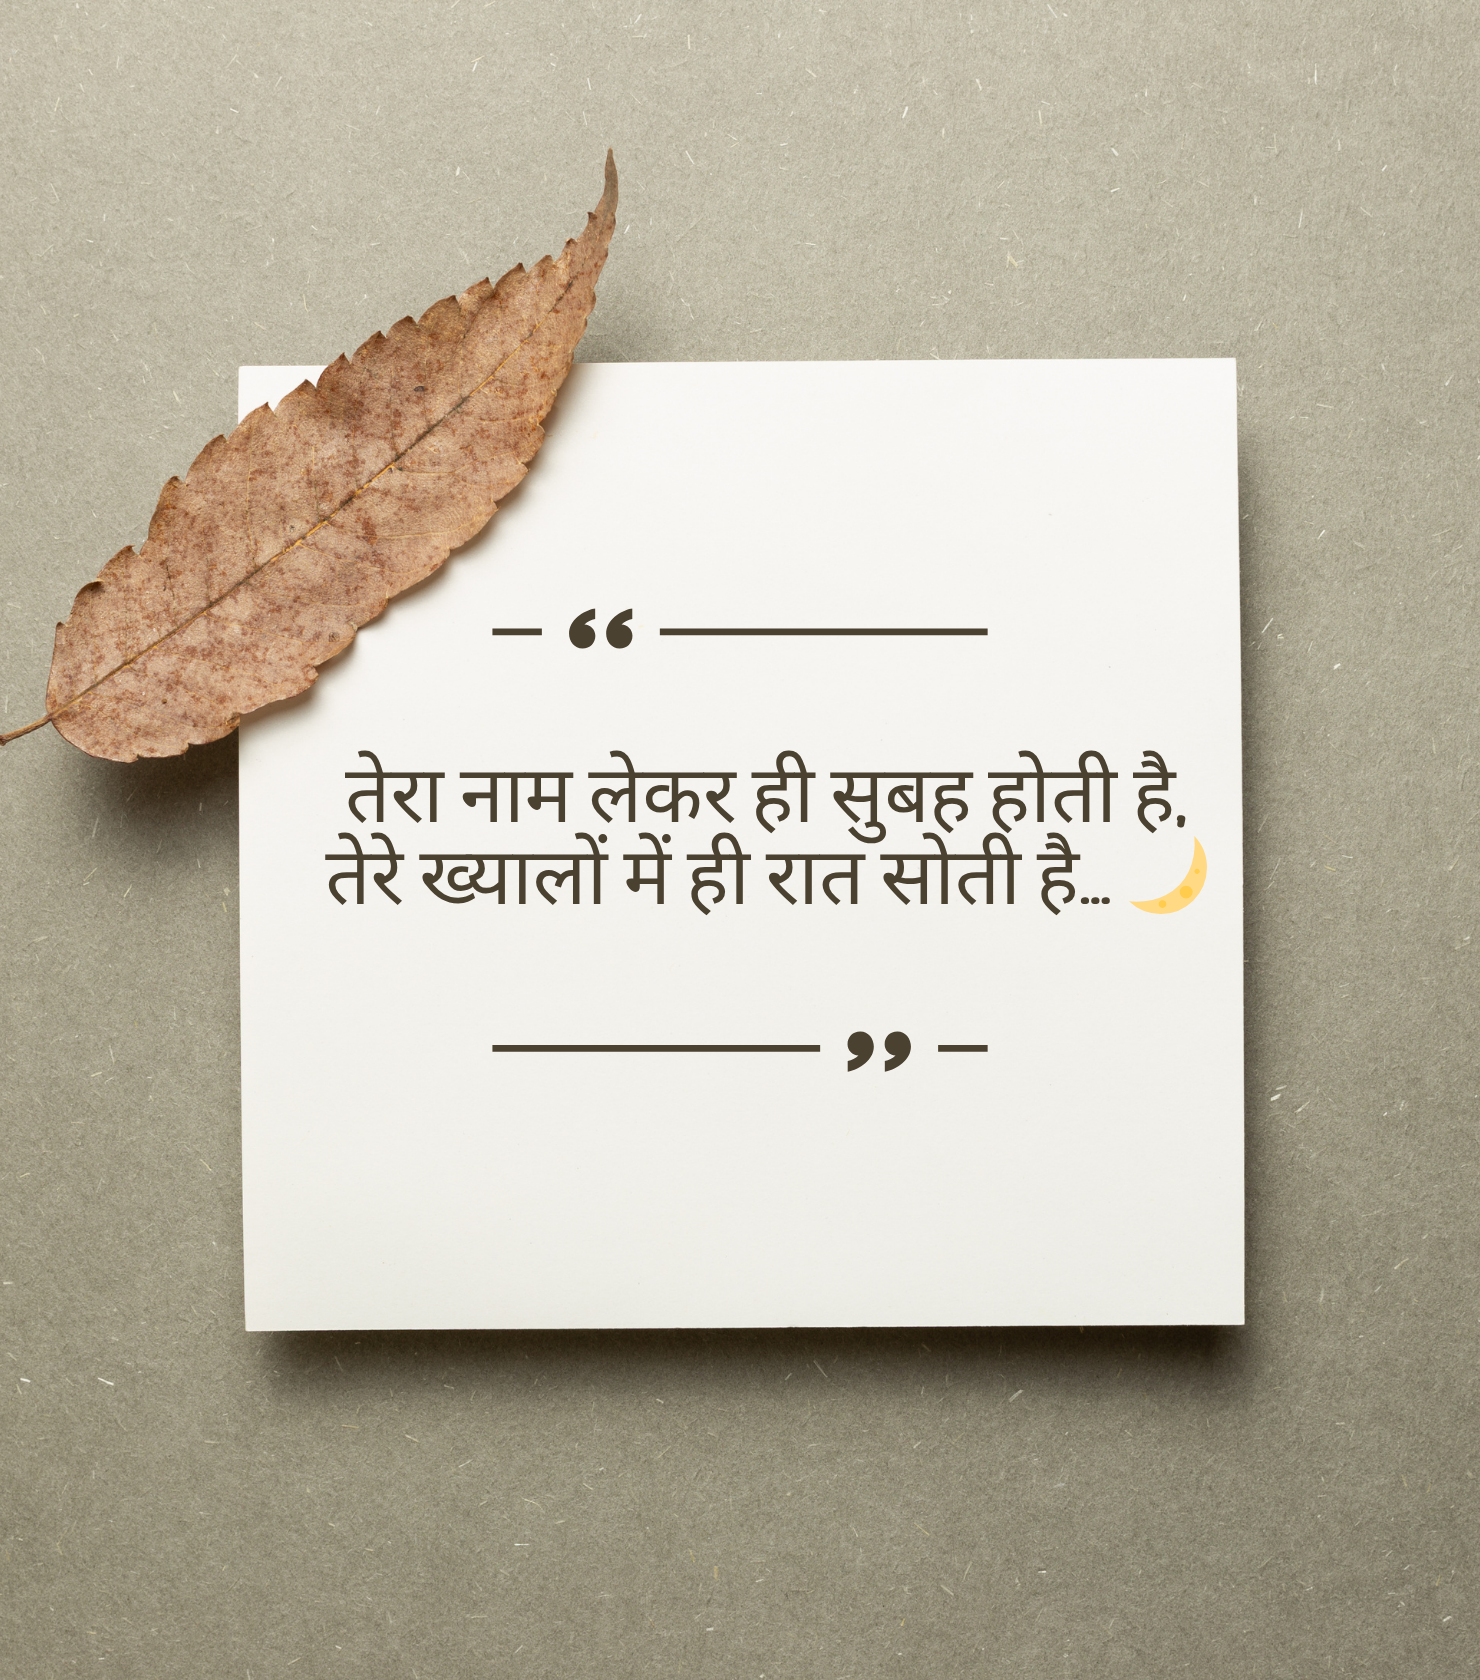 “
तेरा नाम लेकर ही सुबह होती है,
तेरे ख्यालों में ही रात सोती है... 🌙
”